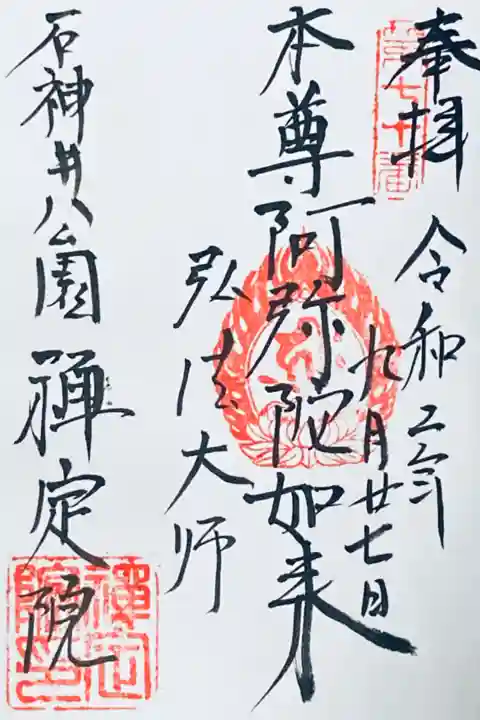 奉拝
第七十番
令和二年
九月廿七日
本尊阿弥陀如来
弘法大师
石神井公園 禅定院
禅定院印